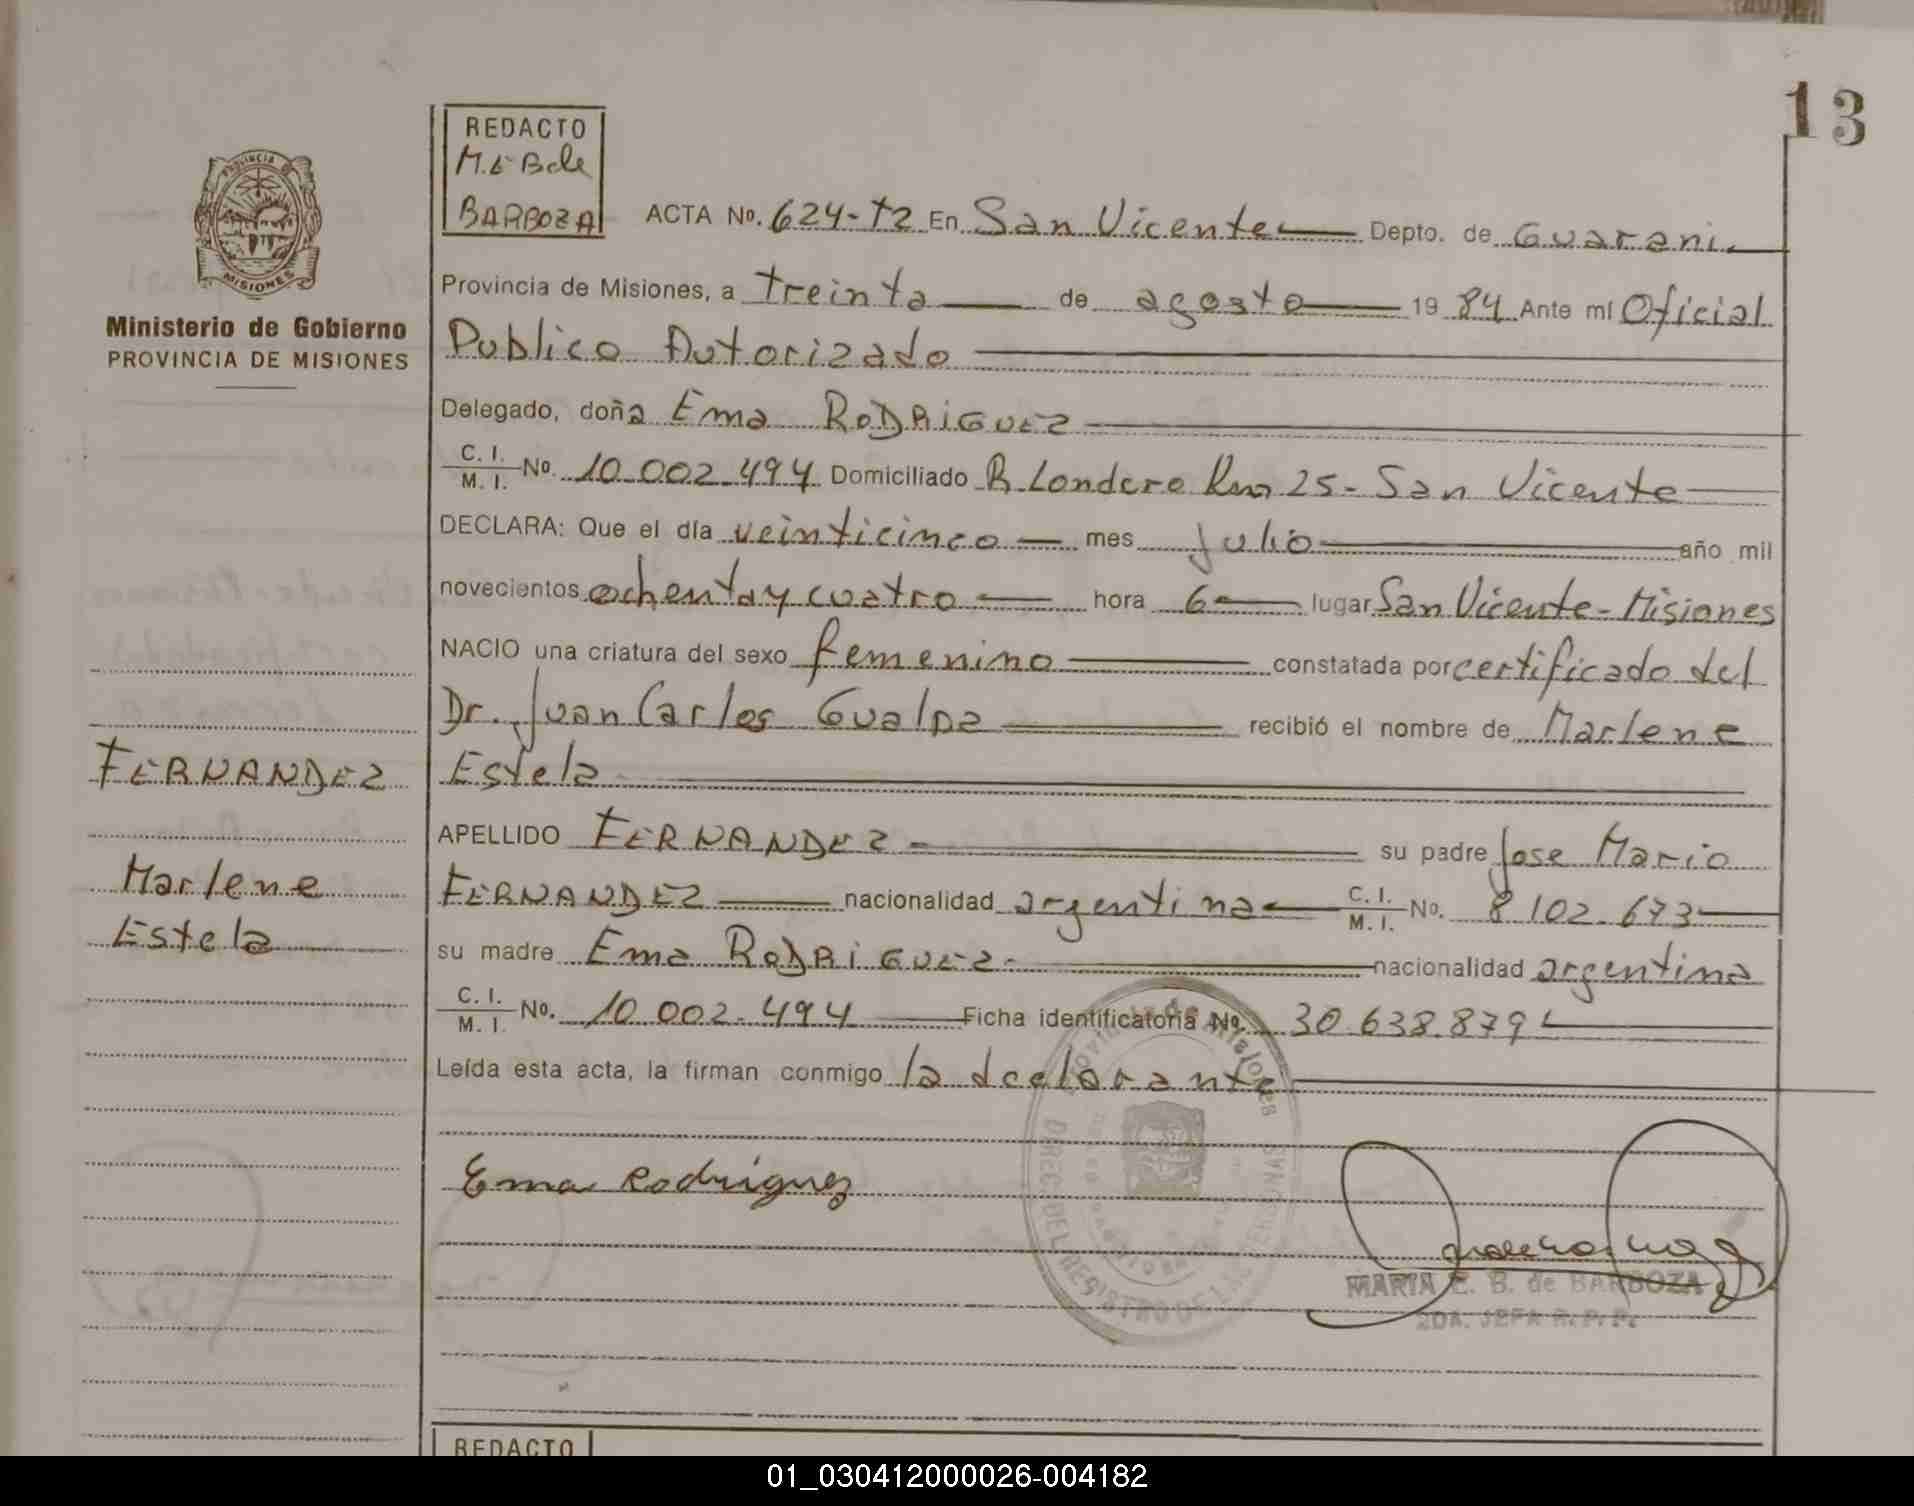 13
REDACTO
M.E B de
BARBOZA
PROVINCIA DE
MISIONES
Ministerio de Gobierno
PROVINCIA DE MISIONES
ACTA No. 624-T2 En San Vicente Depto. de Guarani
Provincia de Misiones, a treinta de agosto 19 84 Ante mí Oficial
Publico Autorizado
Delegado, doña Ema RODRIGUEZ
C. I.
M. I. No. 10.002.494 Domiciliado B. Londero Km 25- San Vicente
DECLARA: Que el día veinticinco mes Julio año mil
novecientos ochenta y cuatro hora 6 lugar San Vicente-Misiones
NACIO una criatura del sexo femenino constatada por certificado del
Dr. Juan Carlos Gualpa recibió el nombre de Marlene
Estela
APELLIDO FERNANDEZ su padre Jose Mario
FERNANDEZ nacionalidad argentina C. I.
M. I. No. 8.102.673
su madre Ema RODRIGUEZ nacionalidad argentina
C. I.
M. I. No. 10.002.494 Ficha identificatoria No. 30.638.879
Leída esta acta, la firman conmigo la declarante
FERNANDEZ
Marlene
Estela
Ema Rodriguez
MARIA E. B. de BARBOZA
2DA. JEFA R. P. P.
REDACTO
01_030412000026-004182